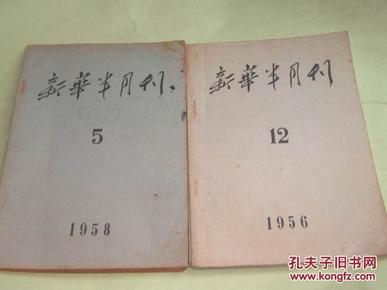 新華半月刊
5
1958
新華半月刊
12
1956
孔夫子旧书网